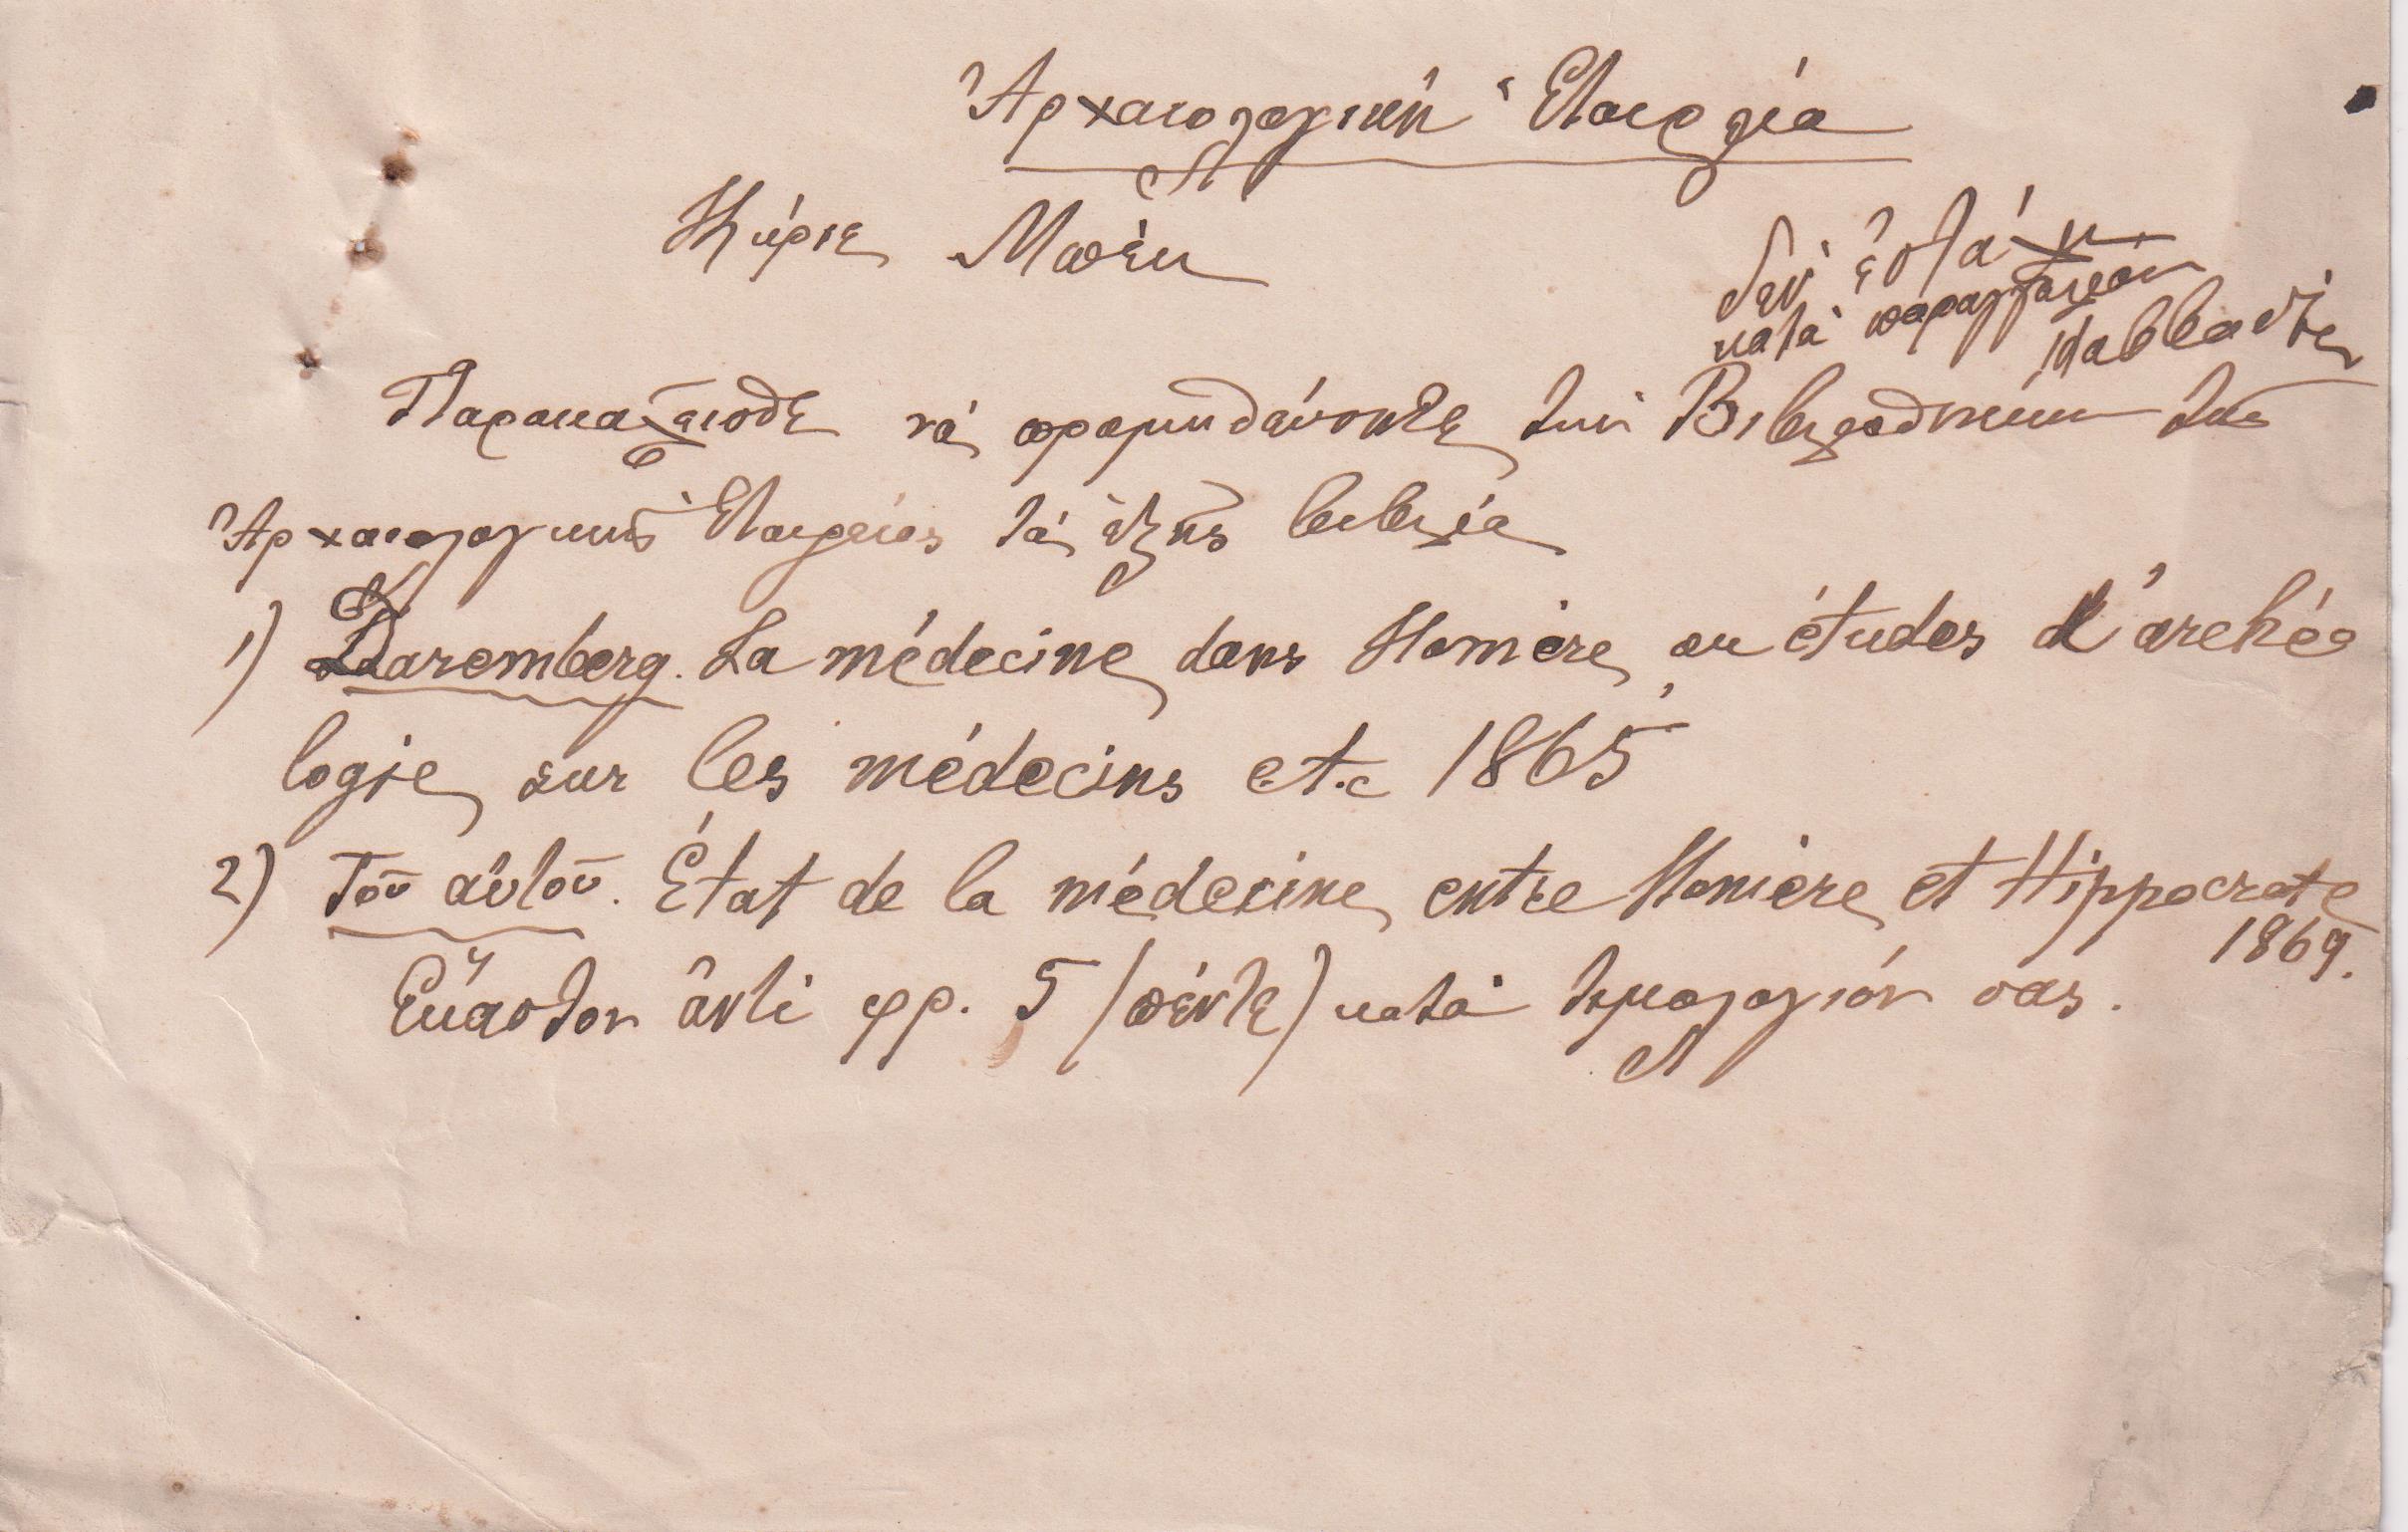 Ἀρχαιολογικὴ Ἑταιρεία
Κύριε Μπέκ
δὲν ἐστάλη
κατὰ παραγγελίαν
Καββαδία
Παρακαλεῖσθε νὰ προμηθεύσητε τὴν Βιβλιοθήκην τῆς
Ἀρχαιολογικῆς Ἑταιρείας τὰ ἑξῆς βιβλία
1) Daremberg. La médecine dans Homère, ou études d'archéo
logie sur les médecins etc 1865
2) Τοῦ αὐτοῦ. État de la médecine entre Homère et Hippocrate
1869.
Ἕκαστον ἀντὶ φρ. 5 (πέντε) κατὰ τιμολόγιόν σας.